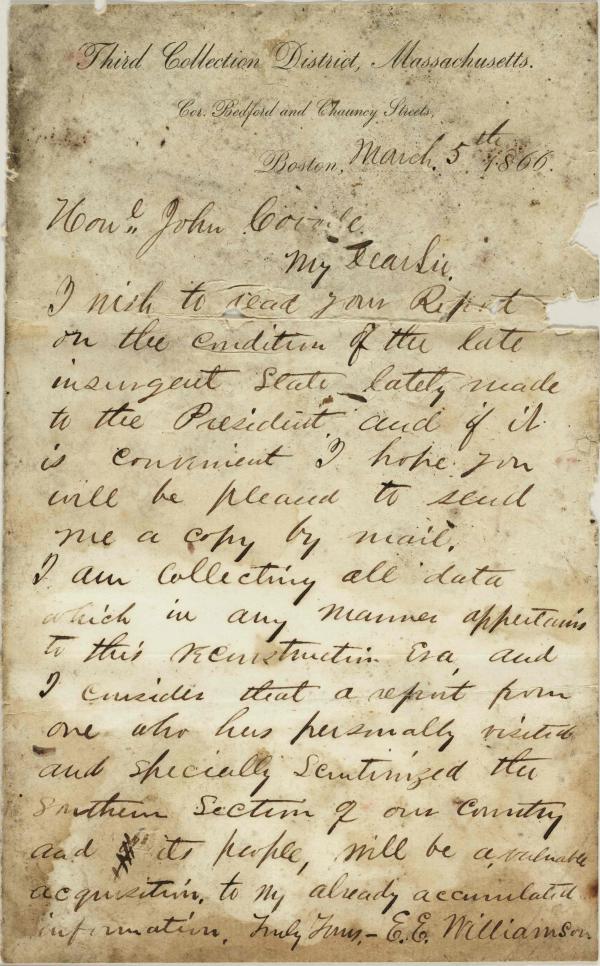 Third Collection District, Massachusetts.
Cor. Bedford and Chauncy Streets,
Boston, March 5th 1866.
Honl. John Covode
My Dear Sir.
I wish to read your Report
on the condition of the late
insurgent State lately made
to the President and if it
is convenient I hope you
will be pleased to send
me a copy by mail.
I am collecting all data
which in any manner appertains
to this reconstruction Era, and
I consider that a report from
one who has personally visited
and specially Scrutinized the
Southern Section of our Country
and its people, will be a valuable
acquisition, to my already accumulated
information. Truly Yours, - E.E. Williamson